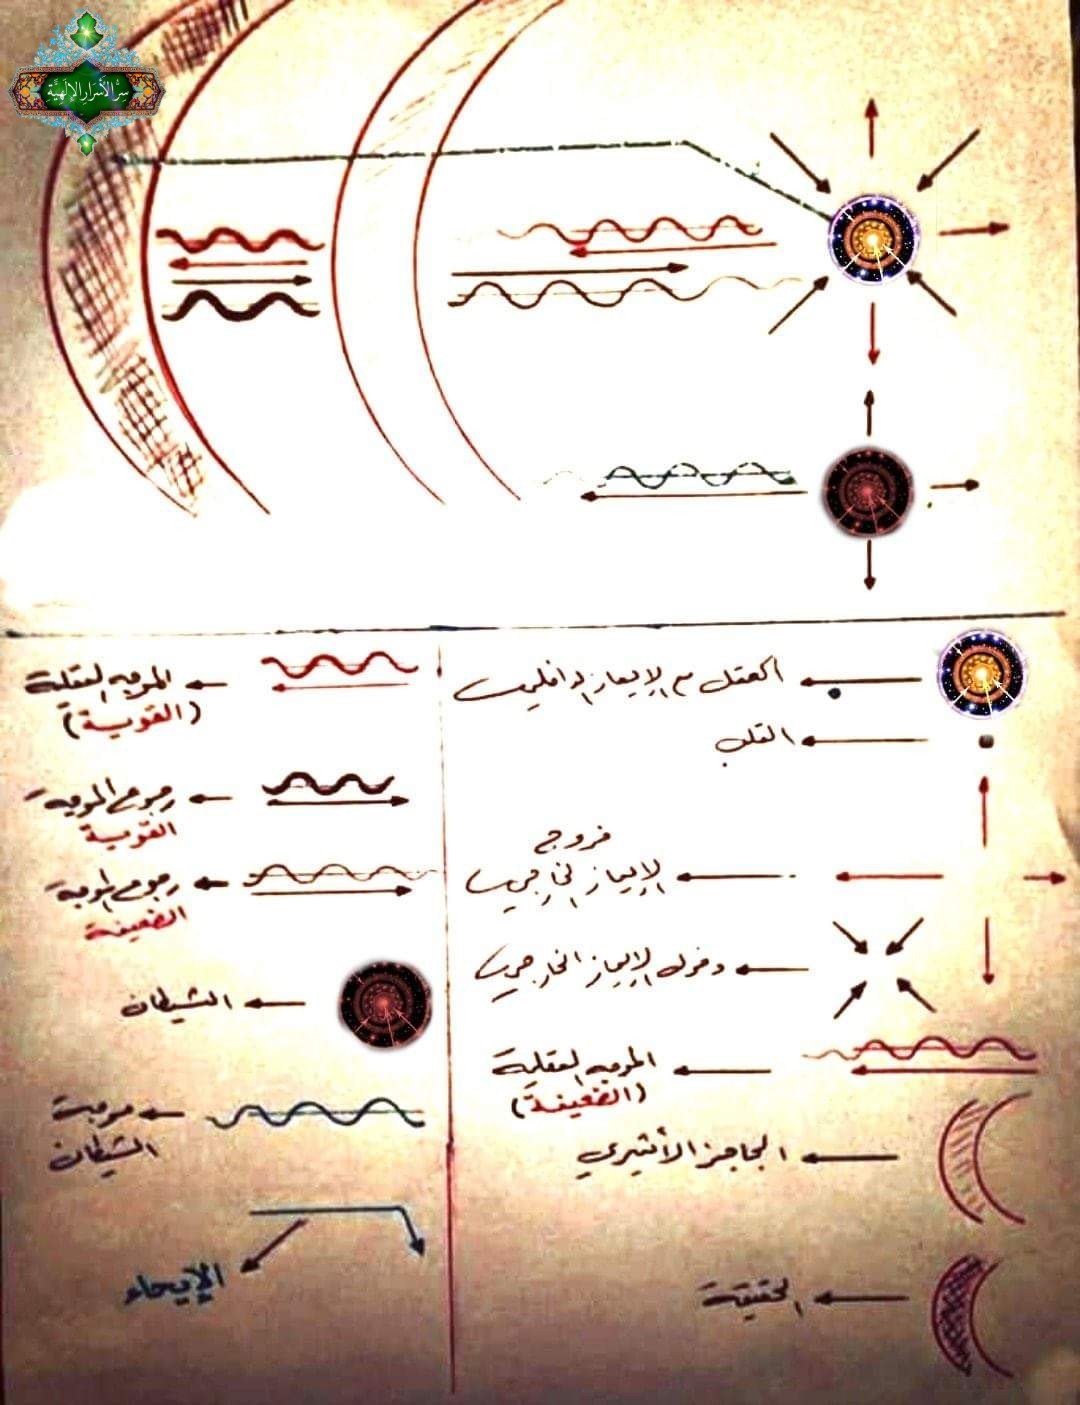 سِرُّ الأَسْرَارِ الإِلٰهِيَّة
العقل مع الإيعاز الداخلي
القلب
خروج
الإيعاز الخارجي
دخول الإيعاز الخارجي
الموجه العقلية
(الضعيفة)
الحاجز الأثيري
الحقيقة
الموجه العقلية
(القوية)
رجوع الموجة
القوية
رجوع الموجة
الضعيفة
الشيطان
موجة
الشيطان
الإيحاء